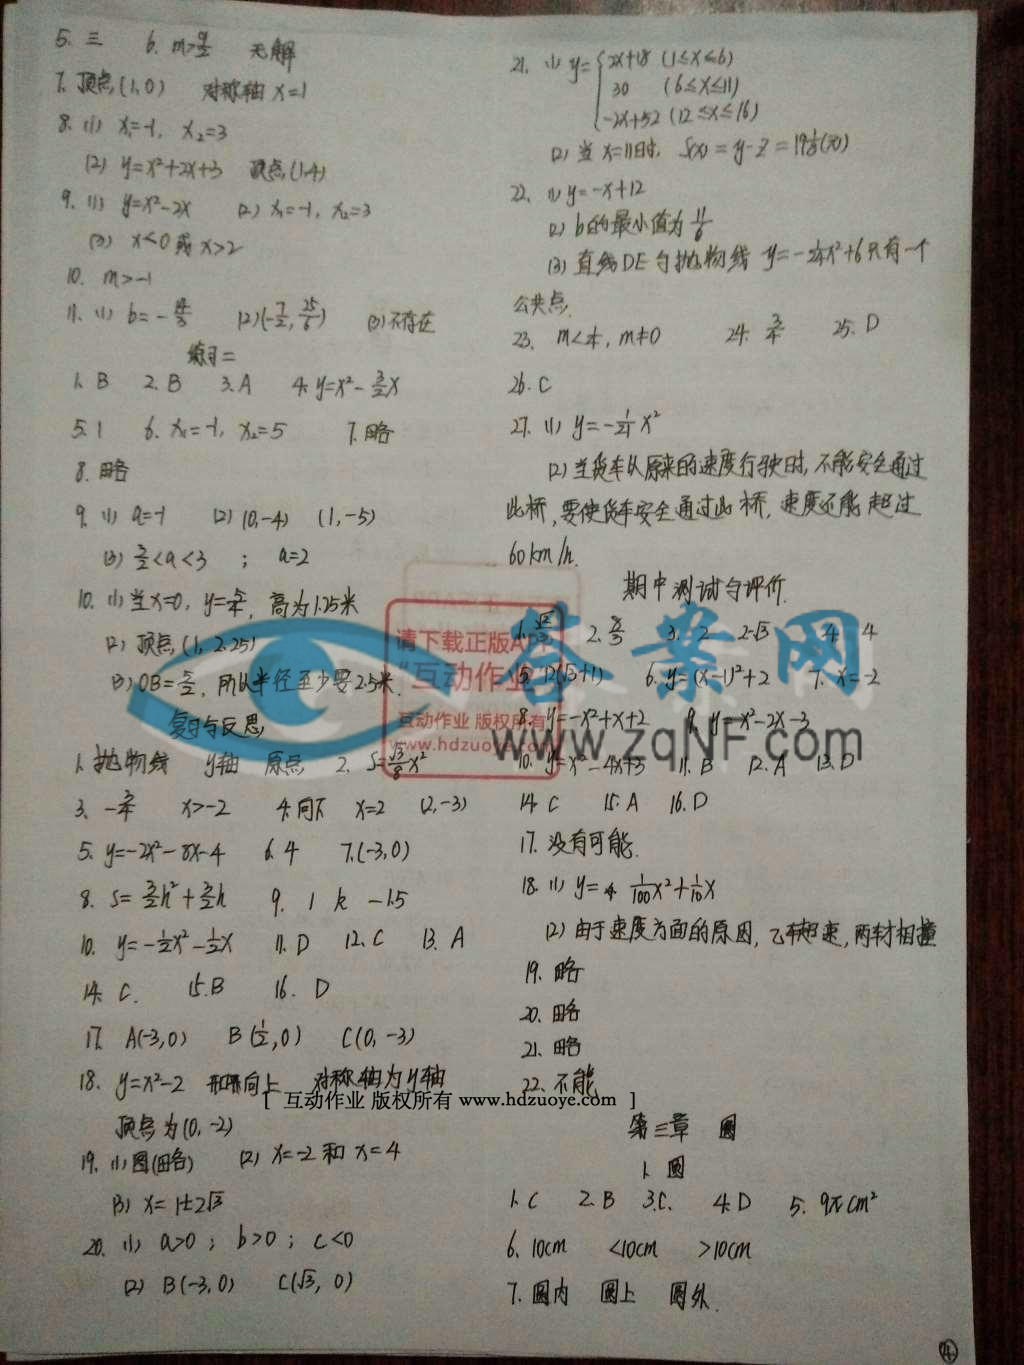 5. 三 6. m>9/2 无解
7. 顶点(1,0) 对称轴 x=1
8. (1) x₁=-1, x₂=3
(2) y=x²+2x+3 顶点(1,4)
9. (1) y=x²-2x (2) x₁=-1, x₂=3
(3) x<0或x>2
10. m>-1
11. (1) b=- (2)(-7/2, 25/6) (3)不存在
练习二
1. B 2. B 3. A 4. y=x²-3/2x
5. 1 6. x₁=-1, x₂=5 7. 略
8. 略
9. (1) a=-1 (2) (0,-4) (1,-5)
(3) 3/2<a<3 ; a=2
10. (1)当x=0, y=5/4, 高为1.25米
(2) 顶点(1, 2.25)
(3) OB=5/2, 所以半径至少要2.5米.
复习与反思
1. 抛物线 y轴 原点 2. S=√3/8x²
3. -3/4 x>-2 4. 向下 x=2 (2,-3)
5. y=-2x²-8x-4 6. 4 7. (-3,0)
8. S=3/2h²+3/2h 9. 1 k -1.5
10. y=-1/2x²-1/2x 11. D 12. C 13. A
14. C. 15. B 16. D
17. A(-3,0) B(1/2,0) C(0,-3)
18. y=x²-2 开口向上 对称轴为y轴
顶点为(0,-2)
19. (1)图(略) (2) x=-2 和 x=4
(3) x=1±2√3
20. (1) a>0 ; b>0 ; c<0
(2) B(-3,0) C(√3, 0)
21. (1) y={2x+18 (1≤x≤6)
30 (6≤x≤11)
-2x+52 (12≤x≤16)
(2) 当x=11时, S(x)=y-z=19 1/8(元)
22. (1) y=-x+12
(2) b的最小值为 11/6
(3) 直线DE与抛物线 y=-1/24x²+6只有一个
公共点.
23. m<1/4, m≠0 24. 3/4 25. D
26. C
27. (1) y=-x²
(2)当货车从原来的速度行驶时, 不能安全通过
此桥, 要使货车安全通过此桥, 速度不能超过
60km/h.
期中测试与评价.
1. 2. 3. 2 2-√3 4. 4
5. 12(√3+1) 6. y=(x-1)²+2 7. x=-2
8. y=-x²+x+2 9. y=x²-2x-3
10. y=x²-4x+3 11. B 12. A 13. D
14. C 15. A 16. D
17. 没有可能.
18. (1) y= 1/100x²+1/10x
(2) 由于速度方面的原因, 乙车超速, 两车才相撞
19. 略
20. 略
21. 略
22. 不能
第三章 圆
1. 圆
1. C 2. B 3. C. 4. D 5. 9π cm²
6. 10cm <10cm >10cm
7. 圆内 圆上 圆外.
4
请下载正版APP
“互动作业”
互动作业 版权所有
www.hdzuoye.com
答案网
www.zqNF.com
[ 互动作业 版权所有 www.hdzuoye.com ]